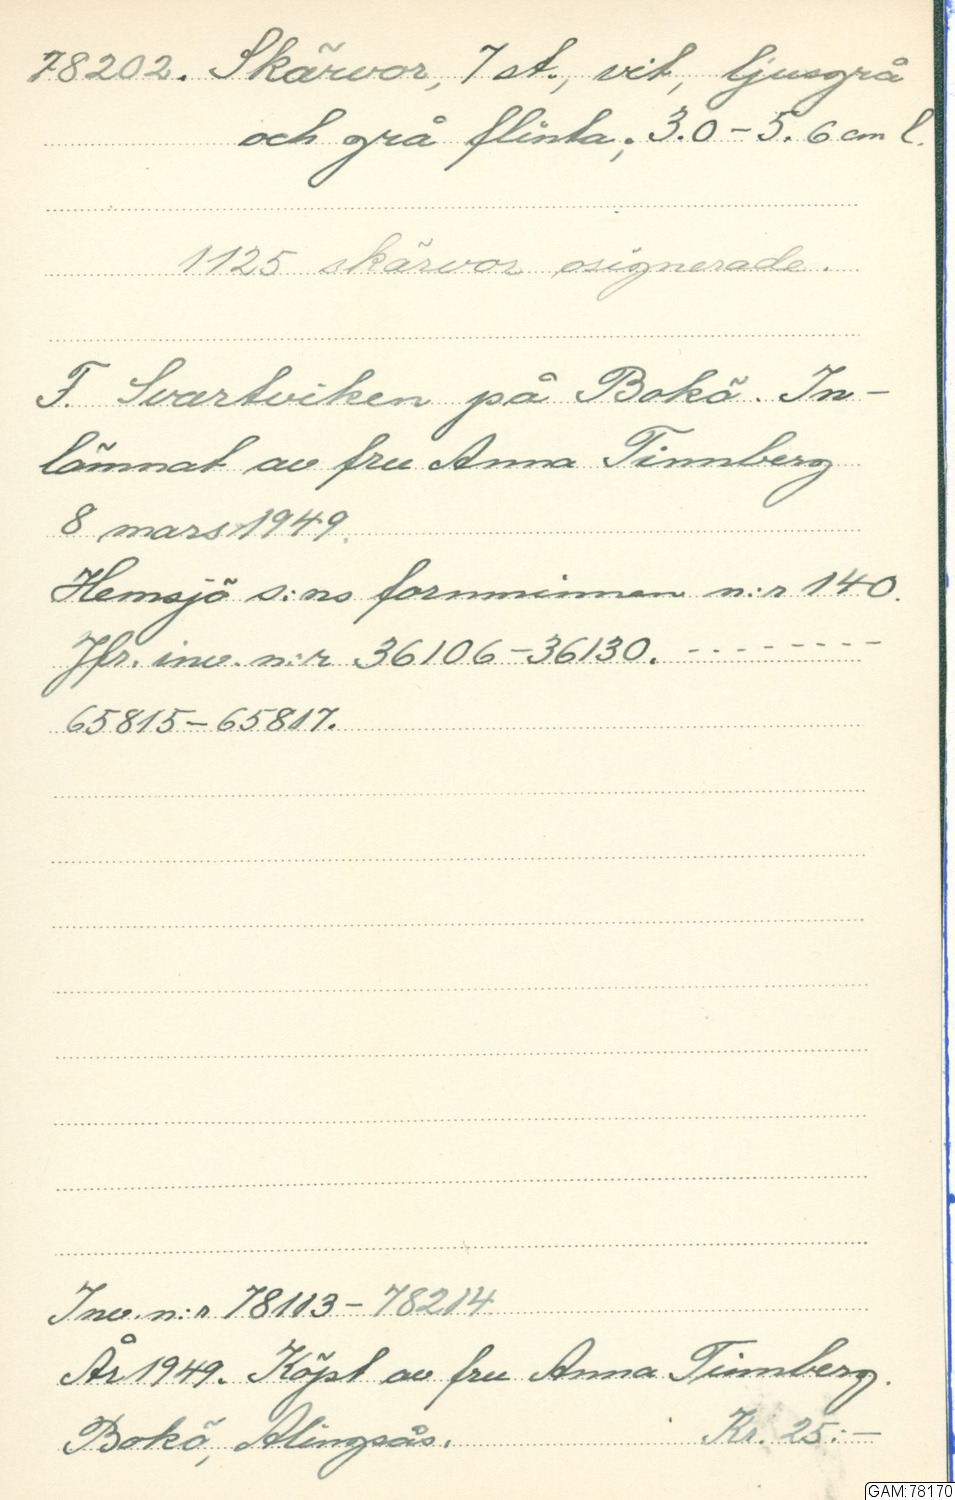 78202. Skärvor, 7 st., vit, ljusgrå
och grå flinta; 3.0-5.6 cm l.
1125 skärvor osignerade.
F. Svartviken på Bokö. In-
lämnat av fru Anna Timnberg
8 mars 1949.
Hemsjö s:ns fornminnen n:r 140.
Jfr. inv. n:r 36106-36130. --------
65815-65817.
Inv. n:r 78113-78214
År 1949. Köpt av fru Anna Timnberg.
Bokö, Alingsås. Kr. 25:-
GAM:78170